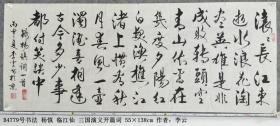 滚滚长江东
逝水浪花淘
尽英雄是非
成败转头空
青山依旧在
几度夕阳红
白发渔樵江
渚上惯看秋
月春风一壶
浊酒喜相逢
古今多少事
都付笑谈中
杨慎词一首
丙申夏李云书于京
84779号书法 杨慎 临江仙 三国演义开篇词 55×138cm 作者：李云